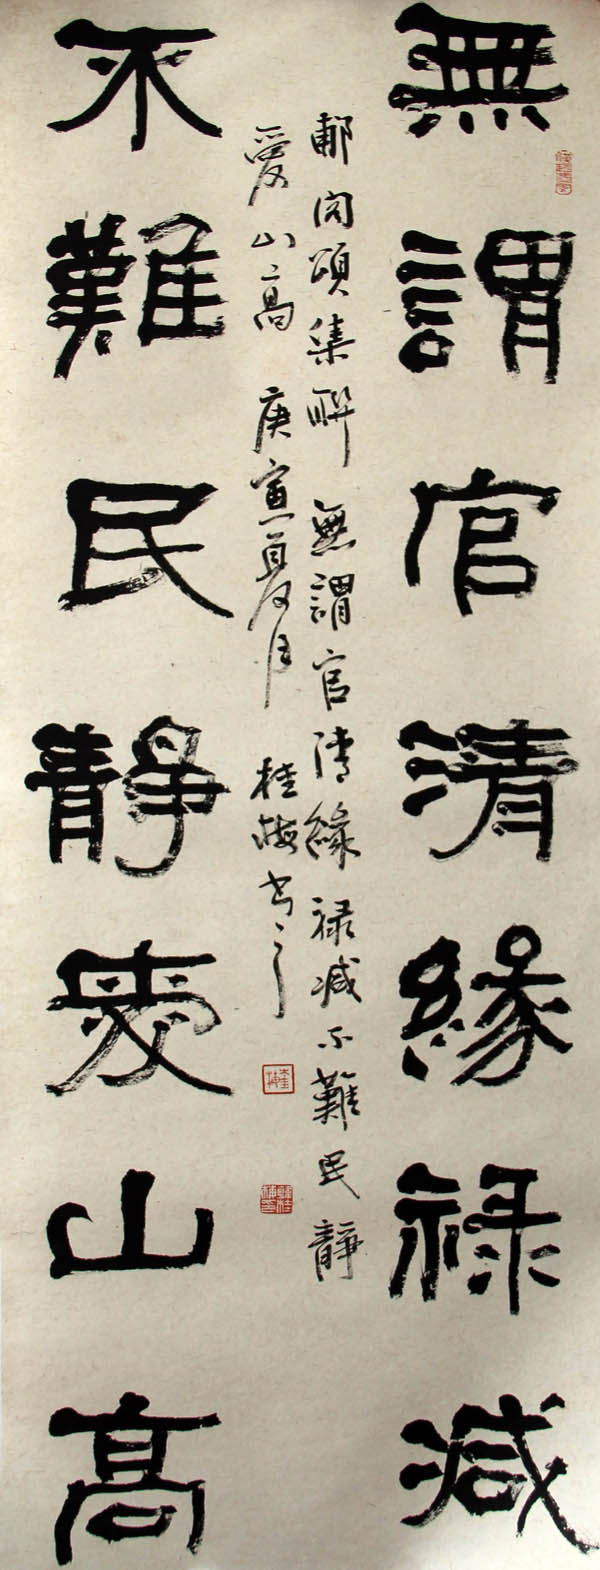 無謂官清緣祿減
郙閣頌集聯 無謂官清緣祿減不難民靜
愛山高 庚寅夏月 桂梅書之
不難民靜愛山高